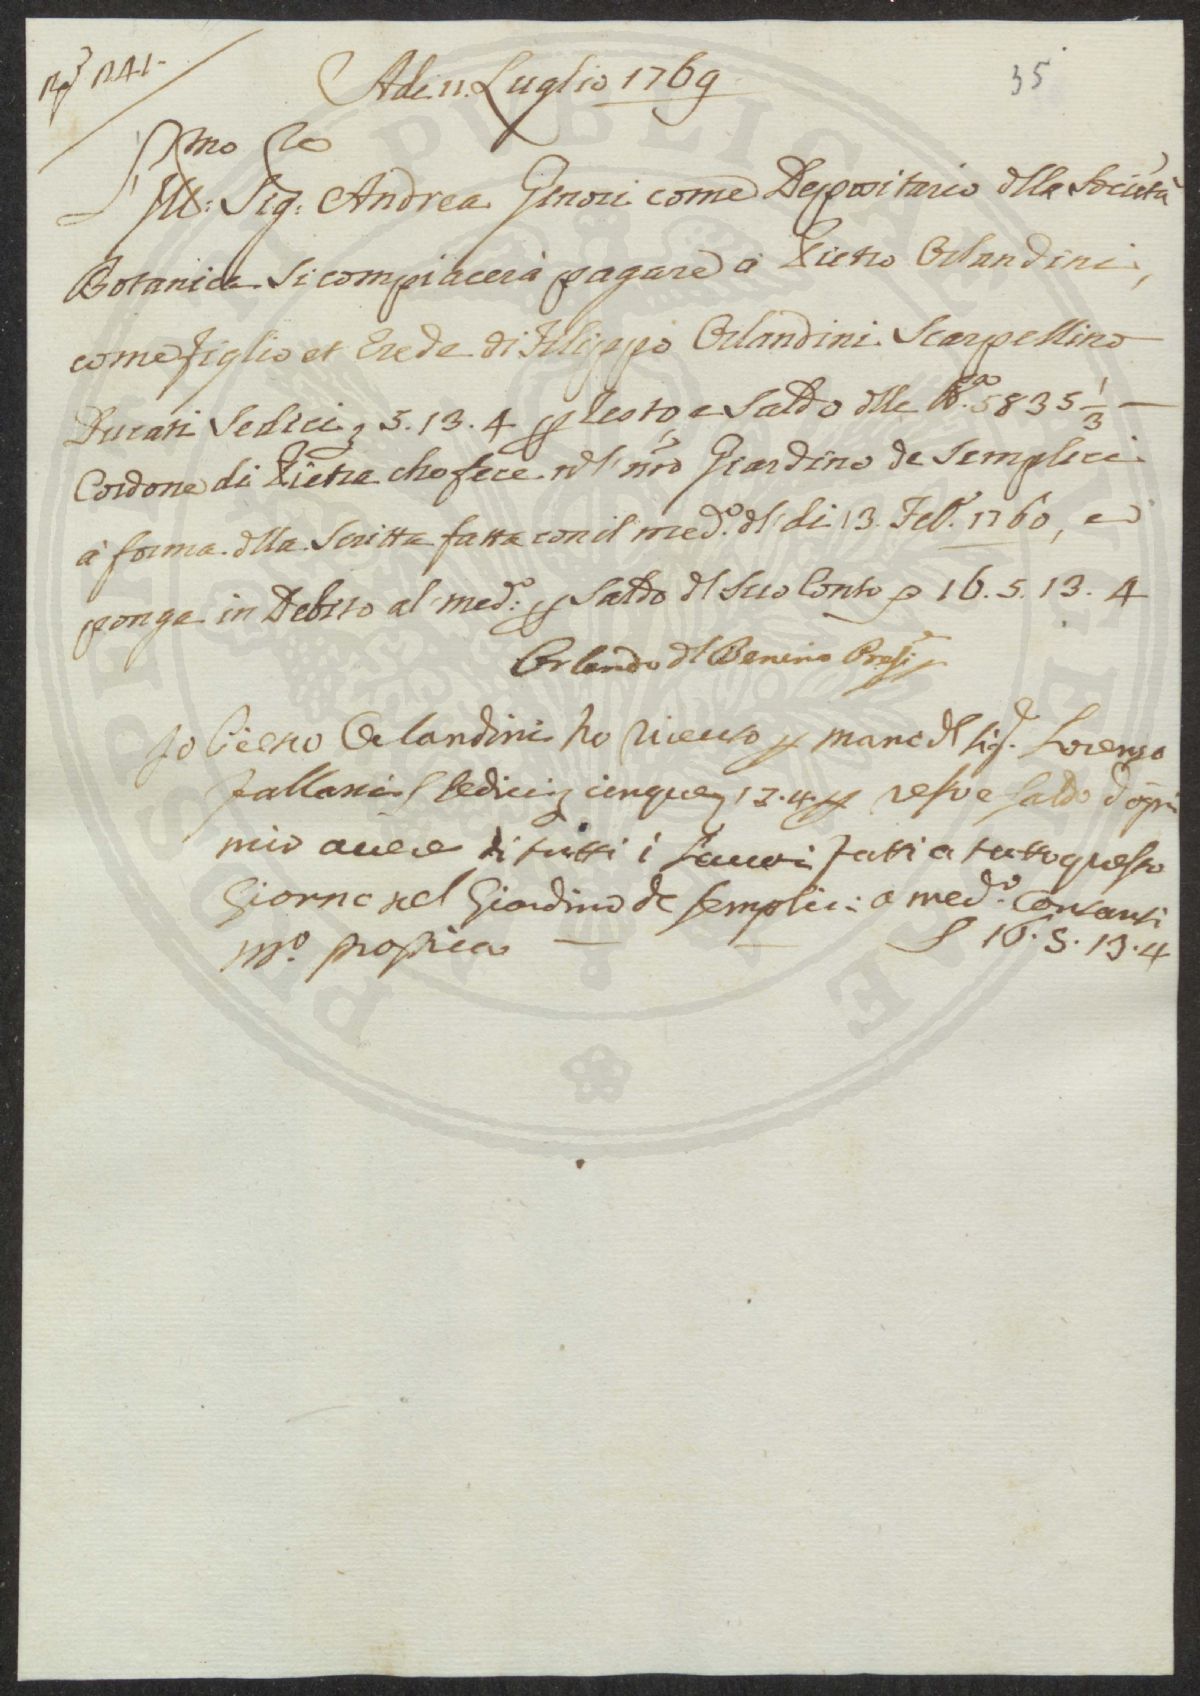 35
Adi 11. Luglio 1769
Ill:mo Sig:re Andrea Ginori come Depositario dlla Società
Botanica si compiacerà pagare à Pietro Orlandini,
come figlio et Erede di Filippo Orlandini Scarpellino
Ducati Sedici 5.13.4 p resto, e Saldo dlle Ba 5835 1/3 —
Cordone di Pietra che fece nel nro Giardino de Semplici
à forma dlla Scritta fatta con il med.o dl' di 13. Feb.o 1760, e
ponga in Debito al med.o p Saldo dl Suo Conto 16.5.13.4
Orlando dl Benino Presi.
Io Pietro Orlandini ho riceuto p mano dl Sig.e Lorenzo
Fallani Sedici cinque 13.4 p resto e saldo d ogni
mio auere di tutti i Lauori fatti a tutto questo
Giorno nel Giardino de Semplici: a med.o Contanti
m.o propria — — 16.5.13.4
PUBLICAE